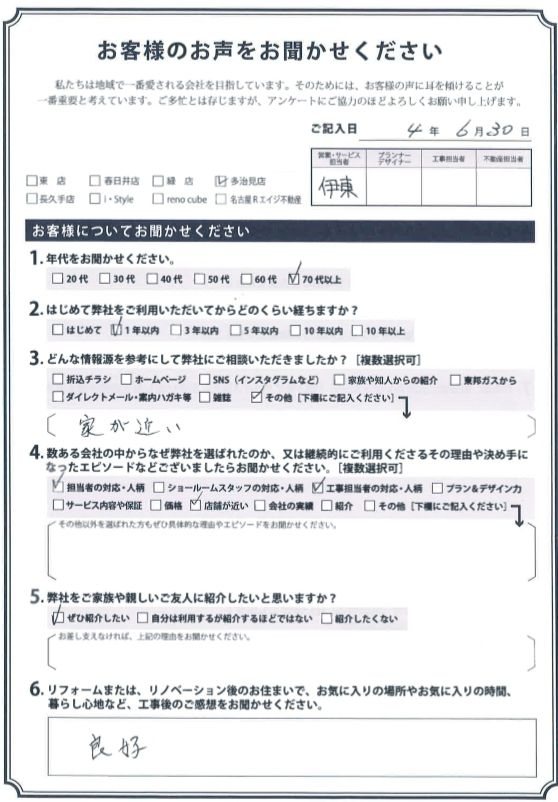 お客様のお声をお聞かせください
私たちは地域で一番愛される会社を目指しています。そのためには、お客様の声に耳を傾けることが
一番重要と考えています。ご多忙とは存じますが、アンケートにご協力のほどよろしくお願い申し上げます。
ご記入日 4年 6月30日
営業・サービス担当者 プランナーデザイナー 工事担当者 不動産担当者
伊東
□東 店 □春日井店 □緑 店 ☑多治見店
□長久手店 □i・Style □reno cube □名古屋Rエイジ不動産
お客様についてお聞かせください
1.年代をお聞かせください。
□20代 □30代 □40代 □50代 □60代 ☑70代以上
2.はじめて弊社をご利用いただいてからどのくらい経ちますか？
□はじめて ☑1年以内 □3年以内 □5年以内 □10年以内 □10年以上
3.どんな情報源を参考にして弊社にご相談いただきましたか？［複数選択可］
□折込チラシ □ホームページ □SNS（インスタグラムなど） □家族や知人からの紹介 □東邦ガスから
□ダイレクトメール・案内ハガキ等 □雑誌 ☑その他［下欄にご記入ください］
家が近い
4.数ある会社の中からなぜ弊社を選ばれたのか、又は継続的にご利用くださるその理由や決め手に
なったエピソードなどございましたらお聞かせください。［複数選択可］
☑担当者の対応・人柄 □ショールームスタッフの対応・人柄 ☑工事担当者の対応・人柄 □プラン&デザイン力
□サービス内容や保証 □価格 ☑店舗が近い □会社の実績 □紹介 □その他［下欄にご記入ください］
その他以外を選ばれた方もぜひ具体的な理由やエピソードをお聞かせください。
5.弊社をご家族や親しいご友人に紹介したいと思いますか？
☑ぜひ紹介したい □自分は利用するが紹介するほどではない □紹介したくない
お差し支えなければ、上記の理由をお聞かせください。
6.リフォームまたは、リノベーション後のお住まいで、お気に入りの場所やお気に入りの時間、
暮らし心地など、工事後のご感想をお聞かせください。
良好